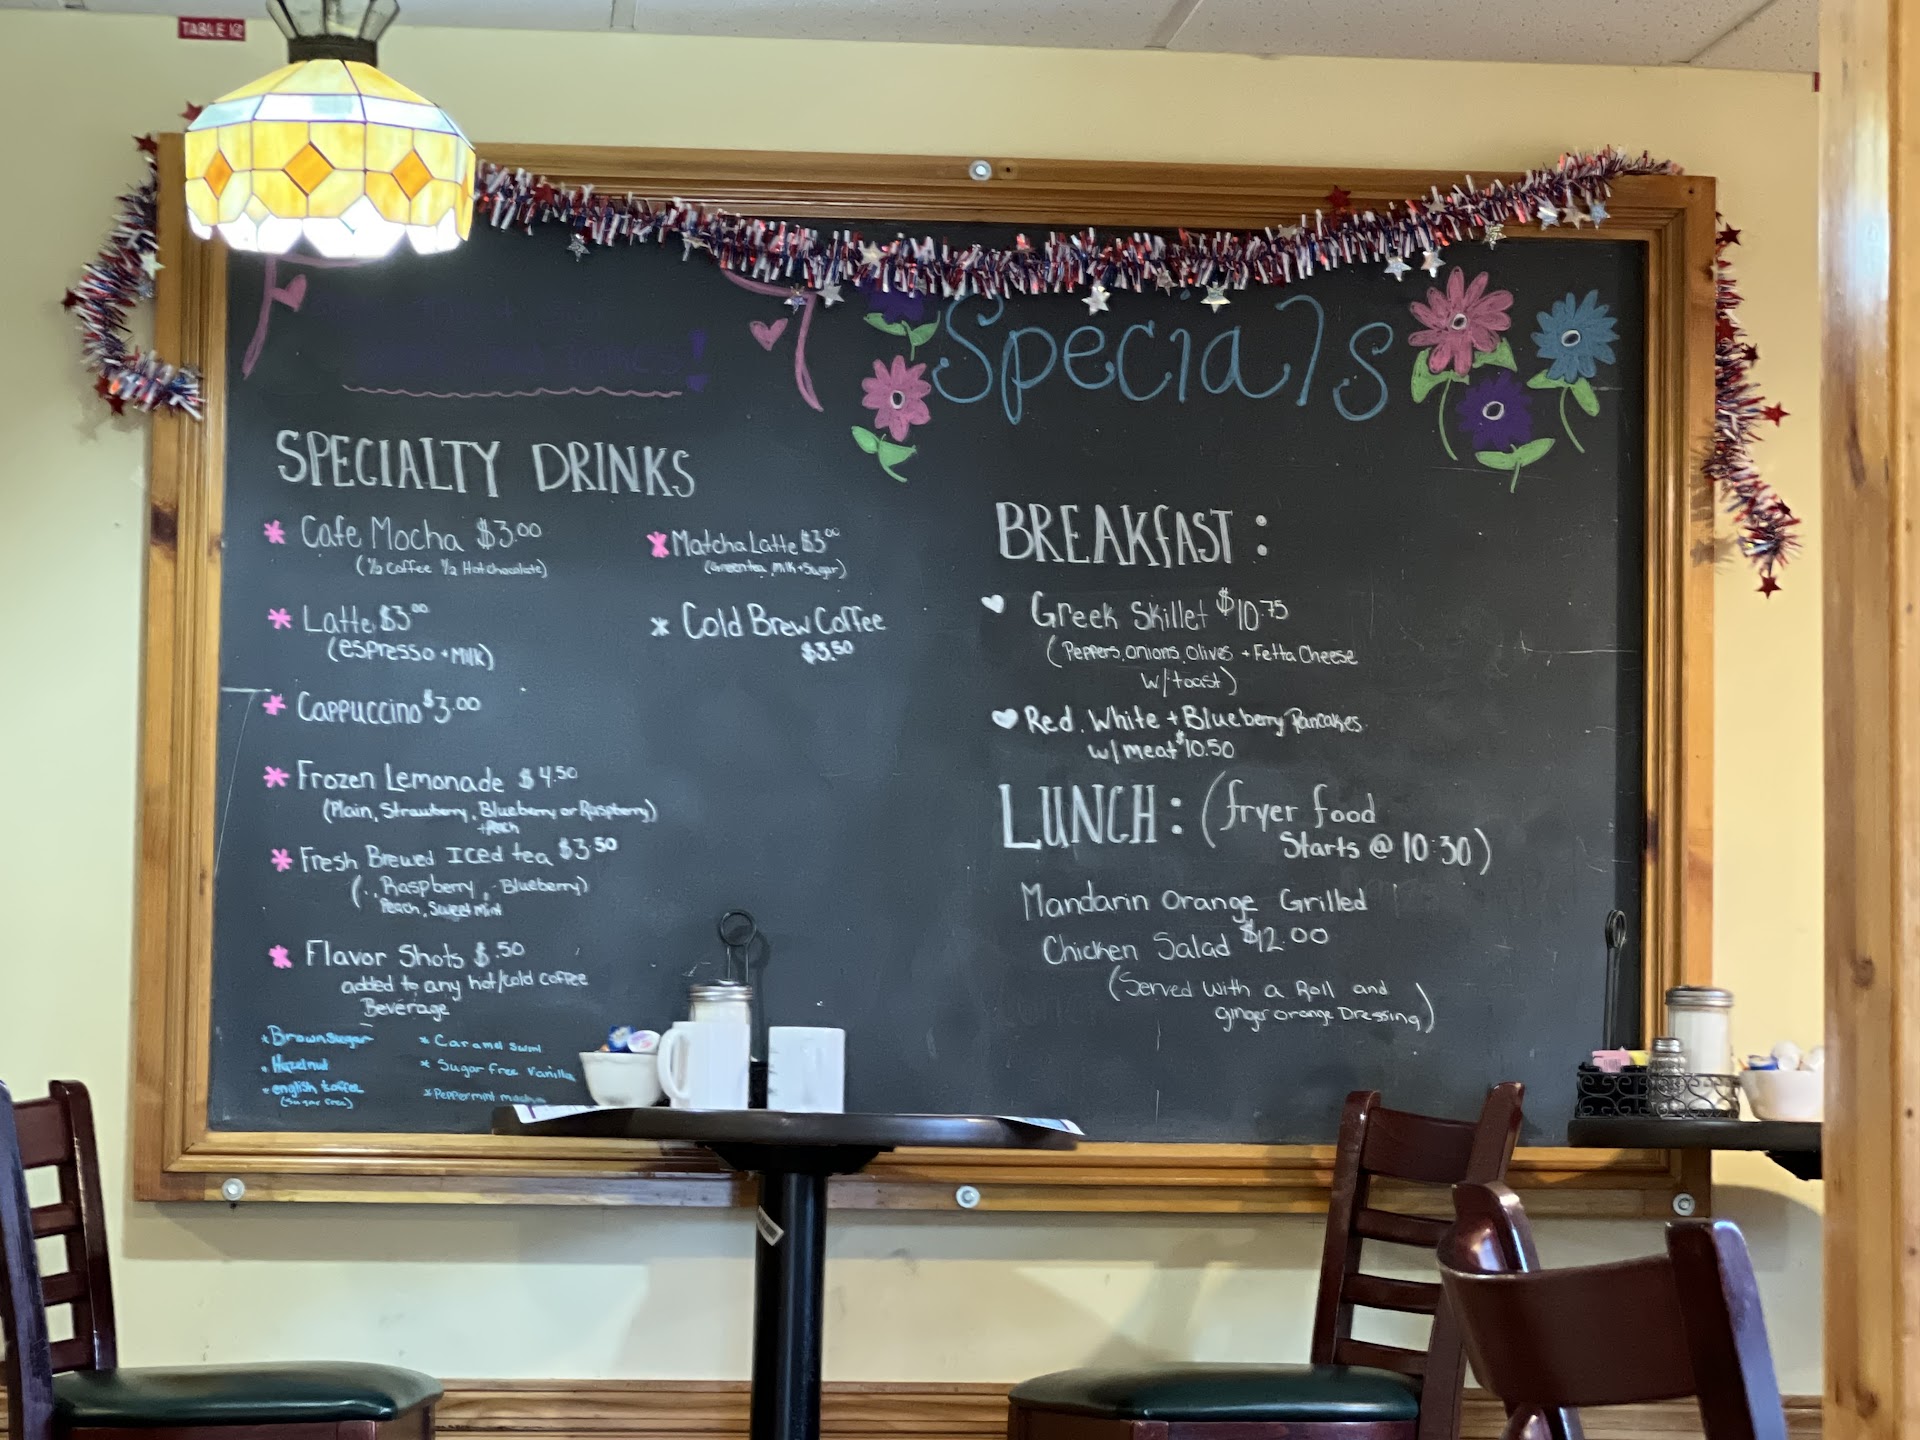 TABLE 12
Specials
SPECIALTY DRINKS
* Cafe Mocha $3.00
(1/2 Coffee 1/2 Hot chocolate)
* Latte $3.00
(espresso + Milk)
* Cappuccino $3.00
* Frozen Lemonade $4.50
(Plain, Strawberry, Blueberry or Raspberry)
+ Peach
* Fresh Brewed Iced tea $3.50
(., Raspberry, Blueberry)
Peach, Sweet Mint
* Flavor Shots $.50
added to any hot/cold coffee
Beverage
* Brown sugar
* Hazelnut
* english toffee
(Sugar free)
* Caramel swirl
* Sugar free Vanilla
* Peppermint mocha
* Matcha Latte $3.00
(Green tea, Milk + Sugar)
* Cold Brew Coffee
$3.50
BREAKfAST:
Greek Skillet $10.75
(Peppers, Onions, Olives + Fetta Cheese
w/ toast)
Red, White + Blueberry Pancakes
w/ meat $10.50
LUNCH: (fryer food
Starts @ 10:30)
Mandarin Orange Grilled
Chicken Salad $12.00
(Served with a Roll and
ginger orange Dressing)